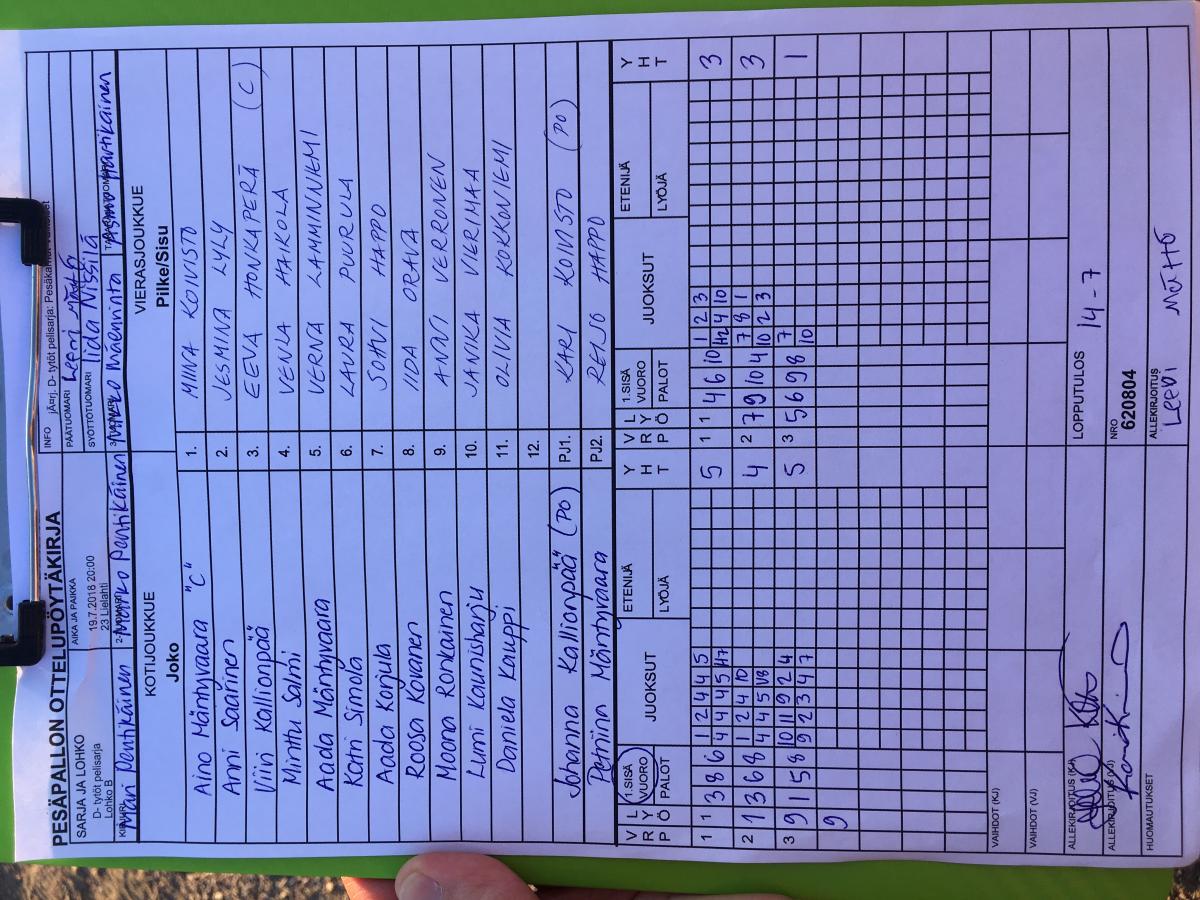 PESÄPALLON OTTELUPÖYTÄKIRJA
SARJA JA LOHKO
D- tytöt pelisarja
Lohko B
AIKA JA PAIKKA
19.7.2018 20:00
23 Lielahti
INFO
PÄÄTUOMARI
Leeni Mättö
SYÖTTÖTUOMARI
Iida Nissilä
Mari Pentikäinen
Marko Pentikäinen
Mikko Määnninta
KOTIJOUKKUE
Joko
VIERASJOUKKUE
Pilke/Sisu
Aino Mäntyvaara "C"
1.
MIINA KOIVISTO
Anni Saarinen
2.
JESMINA LYLY
Viivi Kallionpää
3.
EEVA HONKAPERÄ (C)
Minttu Salmi
4.
VENLA HAIKOLA
Aada Mäntyvaara
5.
VERNA LAMMINNIEMI
Katri Simola
6.
LAURA PUURULA
Aada Korjula
7.
SOHVI HAPPO
Roosa Kovanen
8.
IIDA ORAVA
Moona Ronkainen
9.
ANNI VERRONEN
Lumi Kaunisharju
10.
JANIKA VIERIMAA
Daniela Kauppi
11.
OLIVIA KOKKONIEMI
12.
Johanna Kallionpää (PO)
PJ1.
KARI KOIVISTO (PO)
Mäntyvaara
PJ2.
REIJO HAPPO
V R P
L Y Ö
1.SISÄ VUORO
PALOT
JUOKSUT
ETENIJÄ
LYÖJÄ
Y H T
V R P
L Y Ö
1.SISÄ VUORO
PALOT
JUOKSUT
ETENIJÄ
LYÖJÄ
Y H T
1 1 3 8 6
1 2 4 4 5
4 4 4 5 H7
5
1 1 4 6 10
1 2 3
H2 4 10
3
2 1 3 6 8
1 2 4 10
4 4 5 V8
4
2 7 9 10 4
7 8 1
10 2 3
3
3 9 1 5 8
10 11 9 2 4
9 2 3 4 7
5
3 5 6 9 8
7
10
1
9
VAIHDOT (KJ)
VAIHDOT (VJ)
ALLEKIRJOITUS (KJ)
LOPPUTULOS
14-7
ALLEKIRJOITUS (VJ)
NRO
620804
HUOMAUTUKSET
ALLEKIRJOITUS
LEENI MÄTTÖ